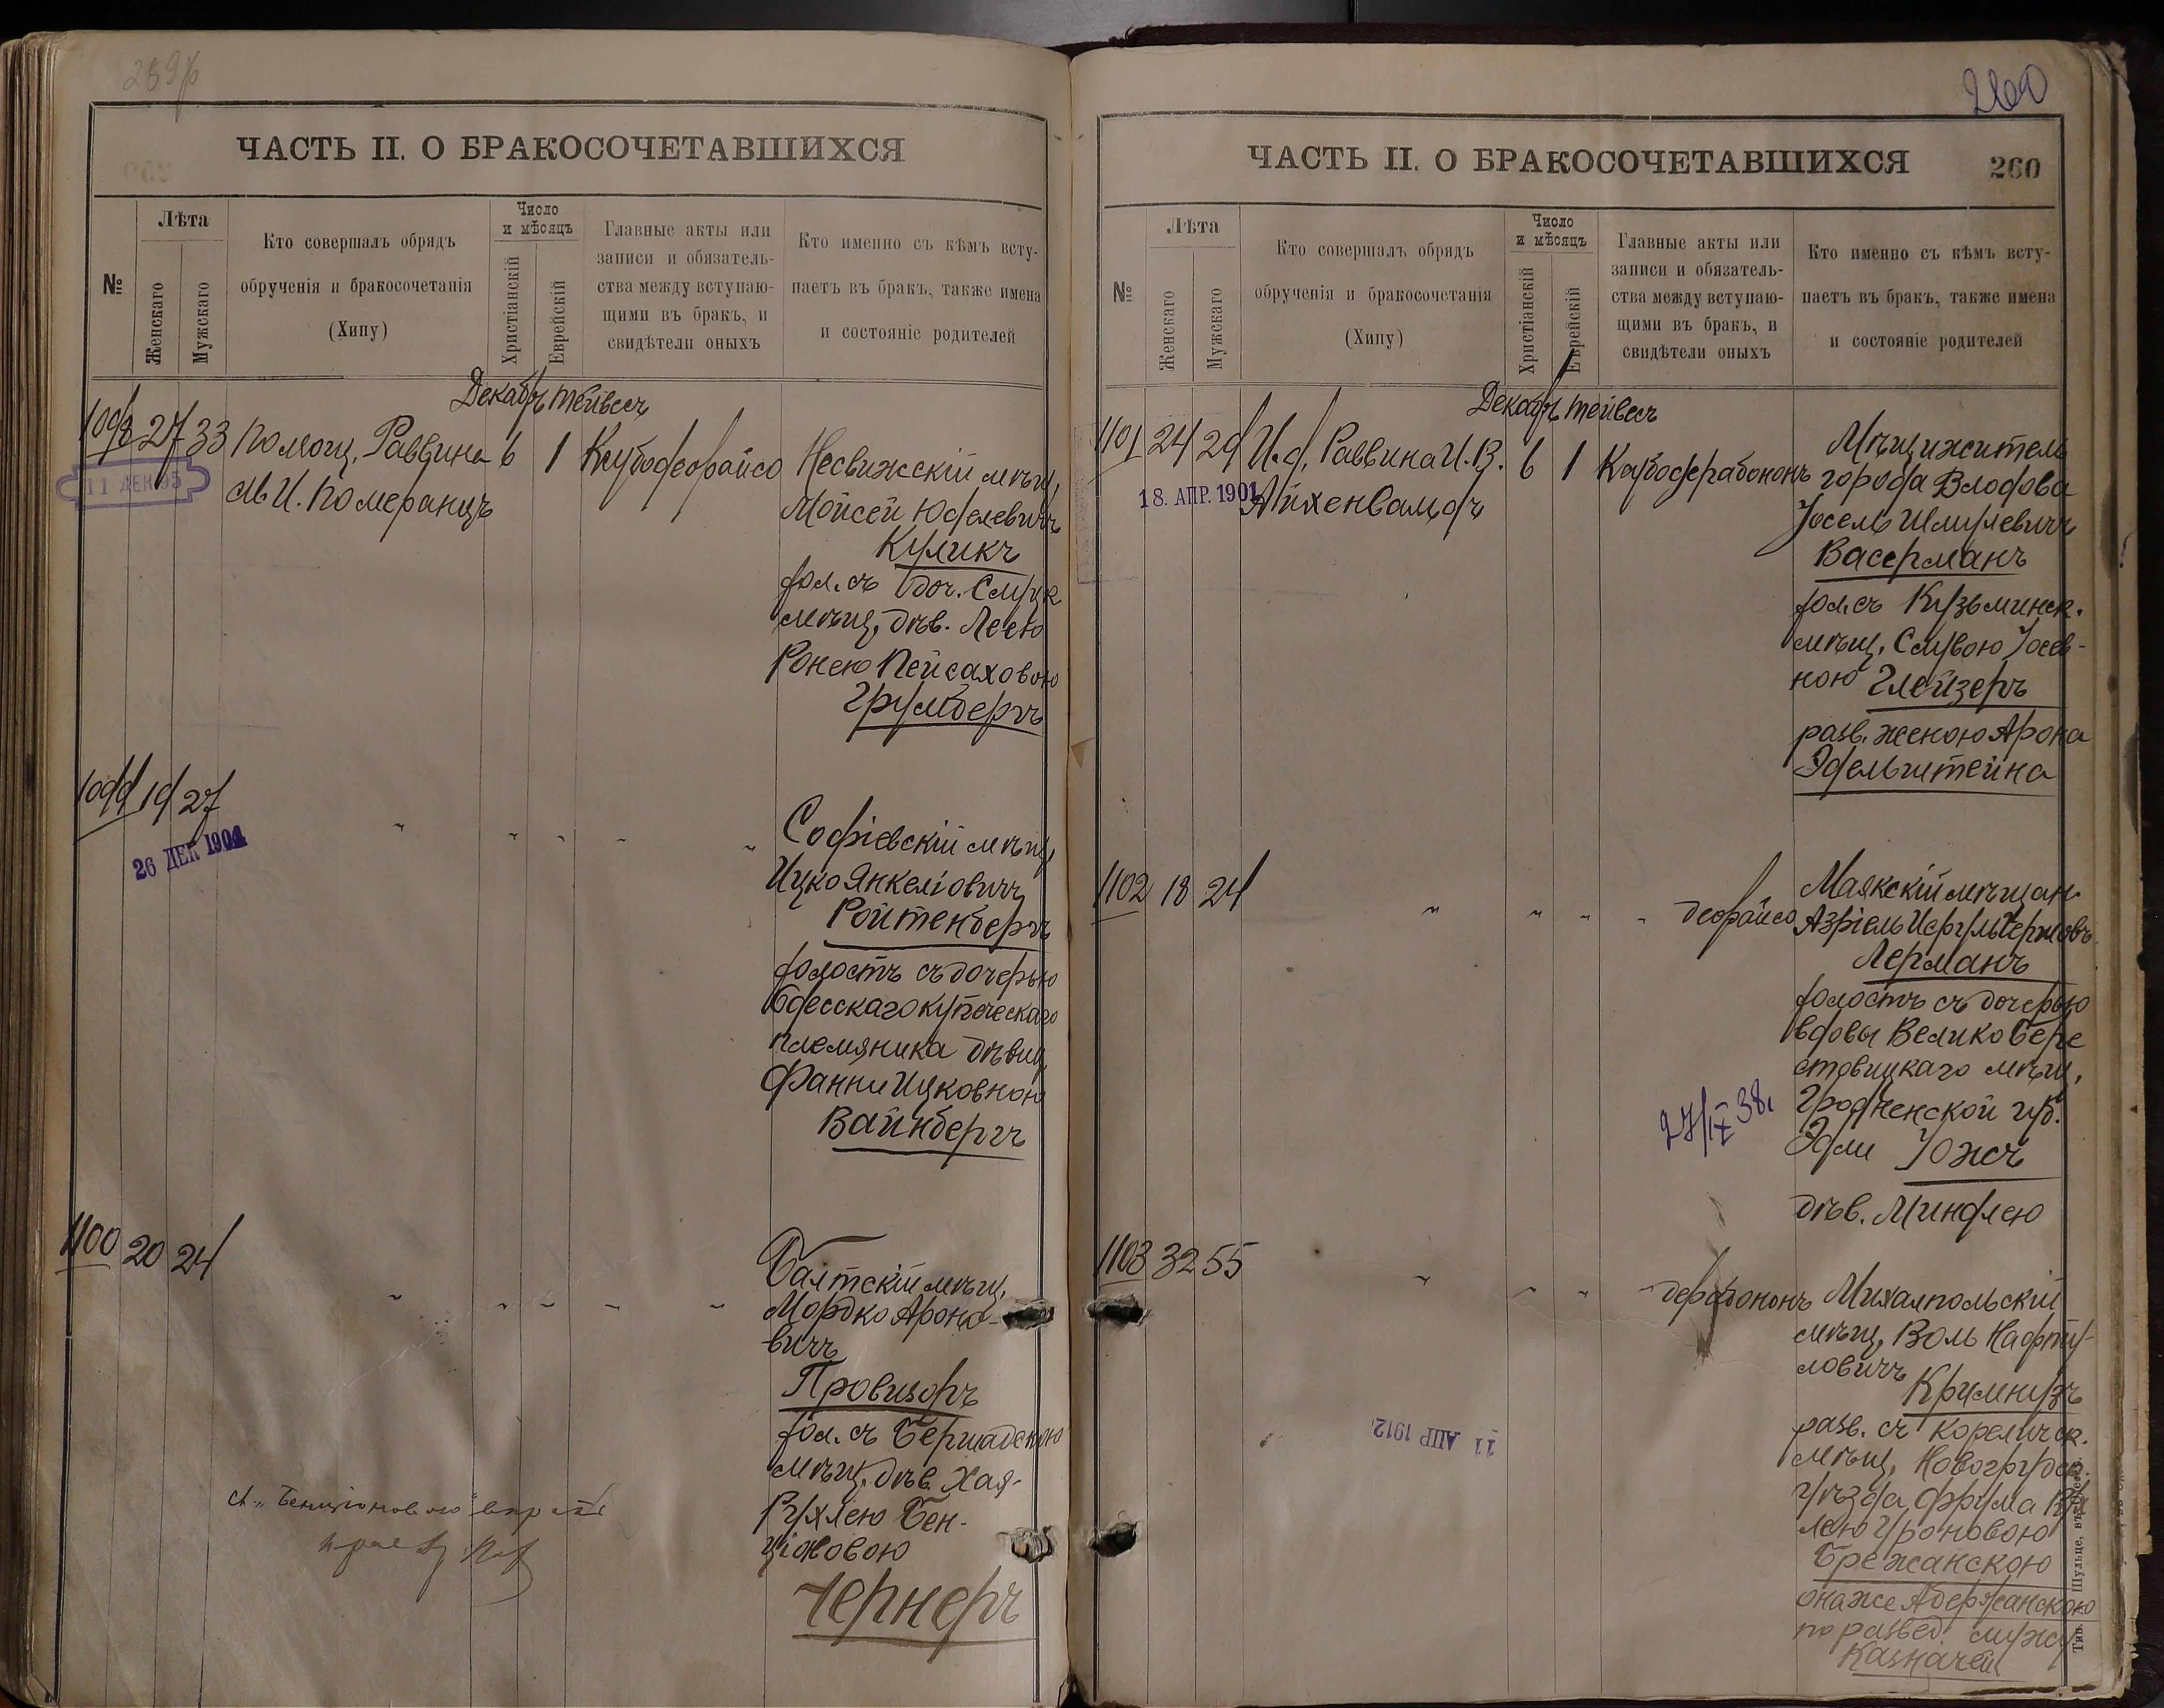 ЧАСТЬ II. О БРАКОСОЧЕТАВШИХСЯ
№
Лѣта
Женскаго
Мужскаго
Кто совершалъ обрядъ
обрученія и бракосочетанія
(Хипу)
Число
и мѣсяцъ
Христіанскій
Еврейскій
Главные акты или
записи и обязатель-
ства между вступаю-
щими въ бракъ, и
свидѣтели оныхъ
Кто именно съ кѣмъ всту-
паетъ въ бракъ, также имена
и состояніе родителей
Декабрь тейвесъ
1098 27 33 Помощ. Раввина 6 1
М. И. Померанцъ
11 ДЕК 95
Несвижскій мѣщ.
Мойсей Юделевичъ
Куликъ
хол. съ доч. Слуцк
мѣщ. дѣв. Леею
Ронею Пейсаховою
Грумбергъ
1099 19 27
26 ДЕК 1904
Софіевскій мѣщ.
Ицко Янкеліовичъ
Ройтенбергъ
холостъ съ дочерью
Одесскаго купеческаго
племяника дѣвиц
Фанни Ицковною
Вайнбергъ
1100 20 24
Балтскій мѣщ.
Мордко Ароно-
вичъ
Провизоръ
хол. съ Бершадскою
мѣщ. дѣв. Хая-
Рухлею Бен-
ціоновою
Чернеръ
ЧАСТЬ II. О БРАКОСОЧЕТАВШИХСЯ
260
260
№
Лѣта
Женскаго
Мужскаго
Кто совершалъ обрядъ
обрученія и бракосочетанія
(Хипу)
Число
и мѣсяцъ
Христіанскій
Еврейскій
Главные акты или
записи и обязатель-
ства между вступаю-
щими въ бракъ, и
свидѣтели оныхъ
Кто именно съ кѣмъ всту-
паетъ въ бракъ, также имена
и состояніе родителей
Декабрь тейвесъ
1101 24 29 И. д. Раввина И. В. 6 1
Айхенвальдъ
18. АПР. 1901
Мѣщ житель
города Влодова
Іосель Шмулевичъ
Васерманъ
хол. съ Кузьминск.
мѣщ. Слувою Іосев-
ною Глейзеръ
разв. женою Арона
Эдельштейна
1102 18 24
деорайсо
Маякскій мѣщан.
Азріель Исруль
Лерманъ
холостъ съ дочерью
вдовы Велико Бере
стовицкаго мѣщ.
Гродненской губ.
27/IX 38.
дѣв. Миндлею
1103 32 55
дерабононъ
Михалпольскій
мѣщ. Волъ Нафту-
ловичъ
разв. съ Кореличск.
мѣщ. Новогрудск.
уѣзда Фрума
Брежанскою
она же
по развед. мужу
Казначей
11 АПР 1912
Тип. Шульце,